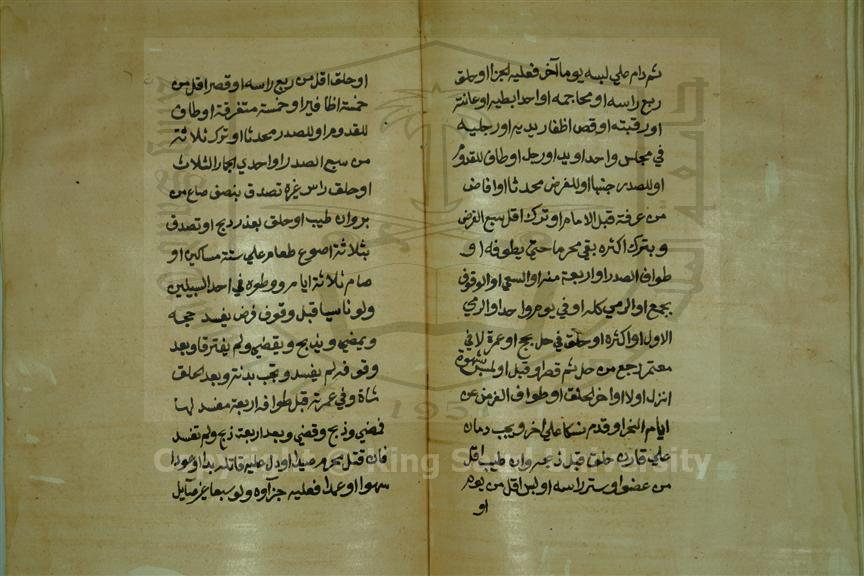 ثم دام علي لبسه يوما آخر فعليه الجزا او حلق
ربع راسه او محاجمه او احدا بطيه او عانته
او رقبته او قص اظفار يديه او رجليه
في مجلس واحد او يد او رجل او طاف للقدوم
او للصدر جنبا او للفرض محدثا او افاض
من عرفة قبل الامام او ترك اقل سبع الفرض
وبترك اكثره بقي محرما حتي يطوفه او
طواف الصدر او اربعة منه او السعي او الوقوف
بجمع او الرمي كله او في يوم واحد او الرمي
الاول او اكثره او حلق في حل بحج او عمرة لا في
معتمر رجع من حل ثم قصر او قبل او لمس بشهوة
انزل اولا او اخر الحلق او طواف الفرض عن
ايام النحر او قدم نسكا علي اخر ويجب دمان
علي قارن حلق قبل ذبحه وان طيب اقل
من عضو او ستر راسه او لبس اقل من يوم
او
او حلق اقل من ربع راسه او قصر اقل من
خمسة اظافير او خمسة متفرقة او طاف
للقدوم او للصدر محدثا او ترك ثلاثة
من سبع الصدر او احدي الجمار الثلاث
او حلق راس غيره تصدق بنصف صاع من
بر وان طيب او حلق بعذر ذبح او تصدق
بثلاثة اصوع طعام علي ستة مساكين او
صام ثلاثة ايام ووطوه في احد السبيلين
ولو ناسيا قبل وقوف فرض يفسد حجه
ويمضي ويذبح ويقضي ولم يفترقا وبعد
وقوفه لم يفسد وتجب بدنة وبعد الحلق
شاة وفي عمرته قبل طوافه اربعة مفسد لها
فمضي وذبح وقضي وبعد اربعة ذبح ولم تفسد
فان قتل محرم صيدا او دل عليه قاتله بدا او عودا
سهوا او عمدا فعليه جزآوه ولو سبعا غير صآيل
Copyright © King Saud University
1957